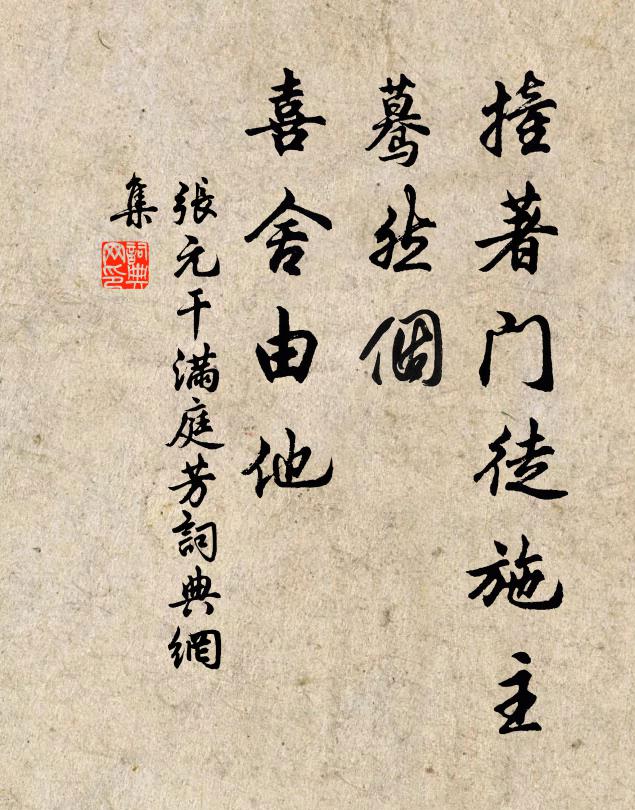 撞著门徒施主
驀然個
喜舍由他
張元干滿庭芳詞典網
集
詞典
网印